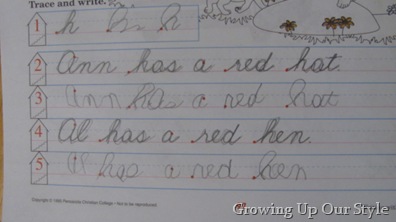 Trace and write.
1 h h h
2 Ann has a red hat.
3 Ann has a red hat
4 Al has a red hen.
5 Al has a red hen
Copyright © Pensacola Christian College • Not to be reproduced.
Growing Up Our Style